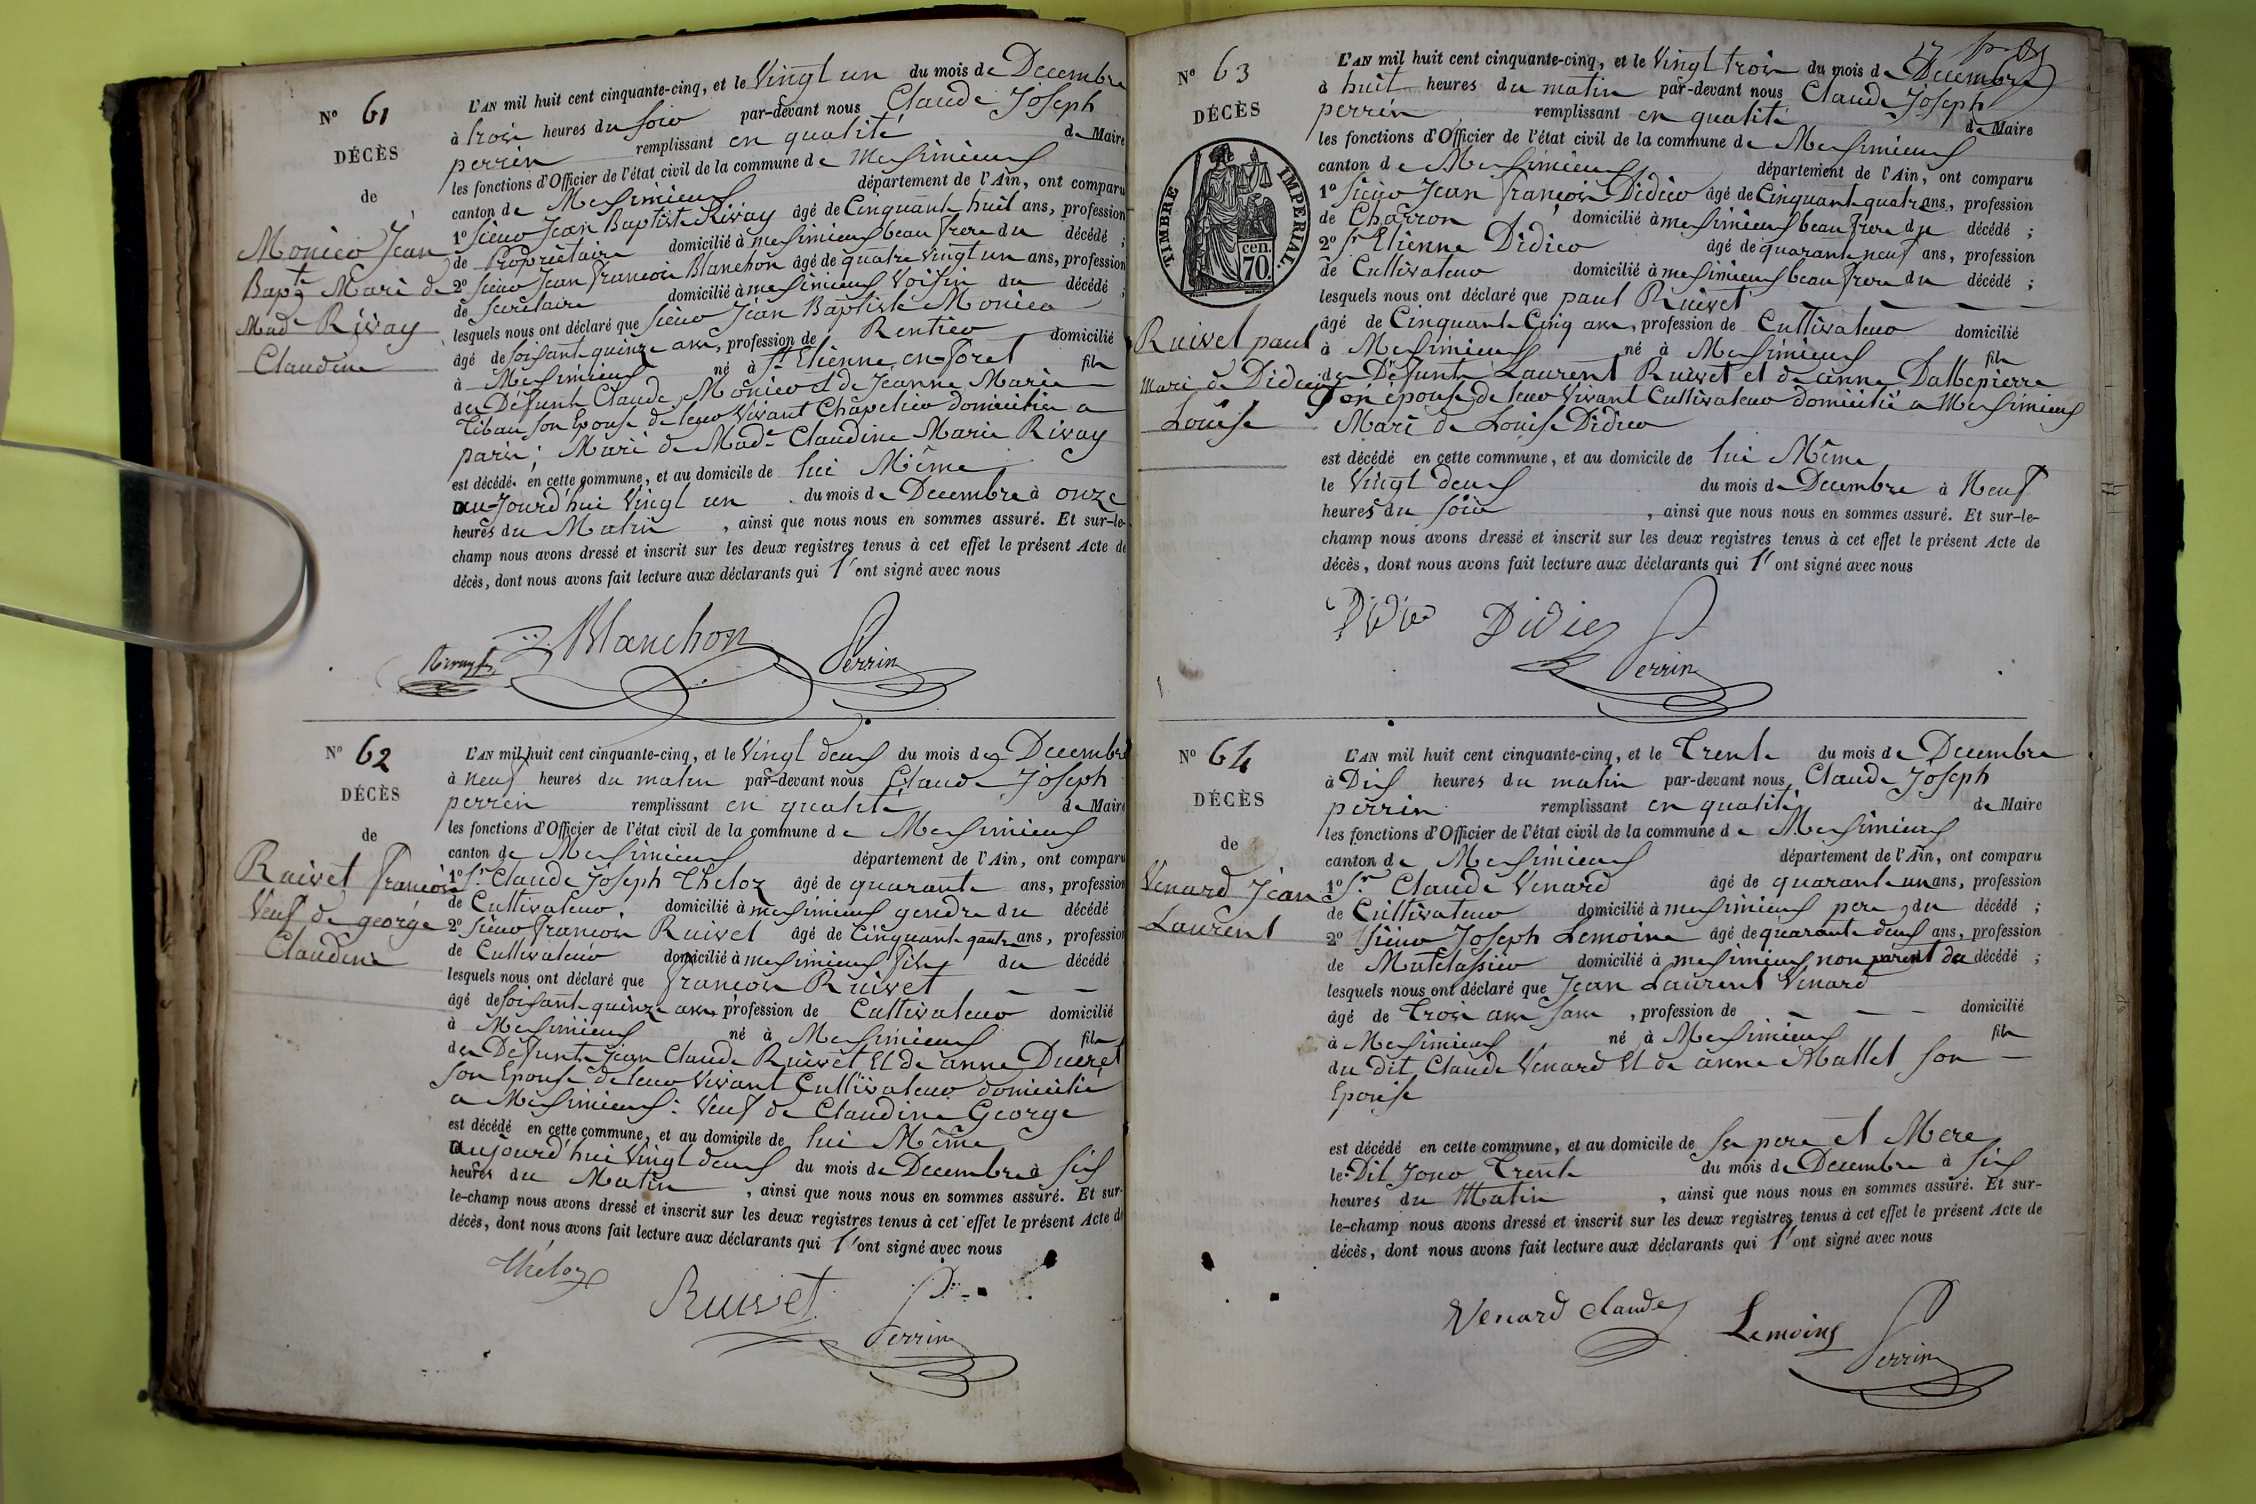 N° 61
DÉCÈS
de
Monier Jean
Bapte Mari de
Made Rivay
Claudine
L'AN mil huit cent cinquante-cinq, et le Vingt un du mois de Decembre
à trois heures du soir par-devant nous Claude Joseph
perrin remplissant en qualité de Maire
les fonctions d'Officier de l'état civil de la commune de Meximieux
canton de Meximieux département de l'Ain, ont comparu
1° Sieur Jean Baptiste Rivay âgé de Cinquante huit ans, profession
de Propriétaire domicilié à meximieux beau frere du décédé ;
2° Sieur Jean François Blanchon âgé de quatre vingt un ans, profession
de Secrétaire domicilié à meximieux Voisin du décédé ;
lesquels nous ont déclaré que Sieur Jean Baptiste Monier
âgé de soixante quinze ans, profession de Rentier domicilié
à Meximieux né à St Etienne en foret fils
des Défunts Claude Monier et de Jeanne Marie
Tibau son Epouse de leur Vivant Chapelier domiciliés a
paris ; Mari de Made Claudine Marie Rivay
est décédé en cette commune, et au domicile de lui Même
aujourd'hui Vingt un du mois de Decembre à onze
heures du Matin, ainsi que nous nous en sommes assuré. Et sur-le-
champ nous avons dressé et inscrit sur les deux registres tenus à cet effet le présent Acte de
décès, dont nous avons fait lecture aux déclarants qui l'ont signé avec nous
Rivay Blanchon Perrin
N° 62
DÉCÈS
de
Ruivet François
Veuf de george
Claudine
L'AN mil huit cent cinquante-cinq, et le Vingt deux du mois de Decembre
à neuf heures du matin par-devant nous Claude Joseph
perrin remplissant en qualité de Maire
les fonctions d'Officier de l'état civil de la commune de Meximieux
canton de Meximieux département de l'Ain, ont comparu
1° Sr Claude Joseph Theloz âgé de quarante ans, profession
de Cultivateur. domicilié à meximieux gendre du décédé
2° Sieur François Ruivet âgé de Cinquante quatre ans, profession
de Cultivateur domicilié à meximieux fils du décédé
lesquels nous ont déclaré que françois Ruivet
âgé de soixante quinze ans, profession de Cultivateur domicilié
à Meximieux né à Meximieux fils
des Défunts Jean Claude Ruivet Et de anne Ducret
son Epouse de leur Vivant Cultivateur domicilié
a Meximieux : Veuf de Claudine George
est décédé en cette commune, et au domicile de lui Même
aujourd'hui Vingt deux du mois de Decembre à six
heures du Matin, ainsi que nous nous en sommes assuré. Et sur-
le-champ nous avons dressé et inscrit sur les deux registres tenus à cet effet le présent Acte de
décès, dont nous avons fait lecture aux déclarants qui l'ont signé avec nous
Théloz Ruivet Perrin
N° 63
DÉCÈS
TIMBRE IMPERIAL.
70 cen.
Ruivet paul
Mari de Didier
Louise
L'AN mil huit cent cinquante-cinq, et le Vingt trois du mois de Decembre
à huit heures du matin par-devant nous Claude Joseph
perrin remplissant en qualité de Maire
les fonctions d'Officier de l'état civil de la commune de Meximieux
canton de Meximieux département de l'Ain, ont comparu
1° Sieur Jean françois Didier âgé de Cinquante quatre ans, profession
de Charron domicilié à meximieux beau frere du décédé ;
2° Sr Etienne Didier âgé de quarante neuf ans, profession
de Cultivateur domicilié à meximieux beau frere du décédé ;
lesquels nous ont déclaré que paul Ruivet
âgé de Cinquante Cinq ans, profession de Cultivateur domicilié
à Meximieux né à Meximieux fils
des Défunts Laurent Ruivet et de anne Dallepierre
son épouse de leur Vivant Cultivateur domicilié a Meximieux
Mari de Louise Didier
est décédé en cette commune, et au domicile de lui Même
le Vingt deux du mois de Decembre à Neuf
heures du soir, ainsi que nous nous en sommes assuré. Et sur-le-
champ nous avons dressé et inscrit sur les deux registres tenus à cet effet le présent Acte de
décès, dont nous avons fait lecture aux déclarants qui l'ont signé avec nous
Didier Didier Perrin
N° 64
DÉCÈS
de
Venard Jean
Laurent
L'AN mil huit cent cinquante-cinq, et le Trente du mois de Decembre
à Dix heures du matin par-devant nous Claude Joseph
perrin remplissant en qualité de Maire
les fonctions d'Officier de l'état civil de la commune de Meximieux
canton de Meximieux département de l'Ain, ont comparu
1° Sr Claude Venard âgé de quarante un ans, profession
de Cultivateur domicilié à meximieux pere du décédé ;
2° Sieur Joseph Lemoine âgé de quarante deux ans, profession
de Matelassier domicilié à meximieux non parent du décédé ;
lesquels nous ont déclaré que Jean Laurent Venard
âgé de Trois ans sans, profession de domicilié
à Meximieux né à Meximieux fils
du dit Claude Venard Et de anne Mallet son
Epouse
est décédé en cette commune, et au domicile de ses pere et Mere
le Dit Jour Trente du mois de Decembre à six
heures du Matin, ainsi que nous nous en sommes assuré. Et sur-
le-champ nous avons dressé et inscrit sur les deux registres tenus à cet effet le présent Acte de
décès, dont nous avons fait lecture aux déclarants qui l'ont signé avec nous
Venard Claude Lemoine Perrin